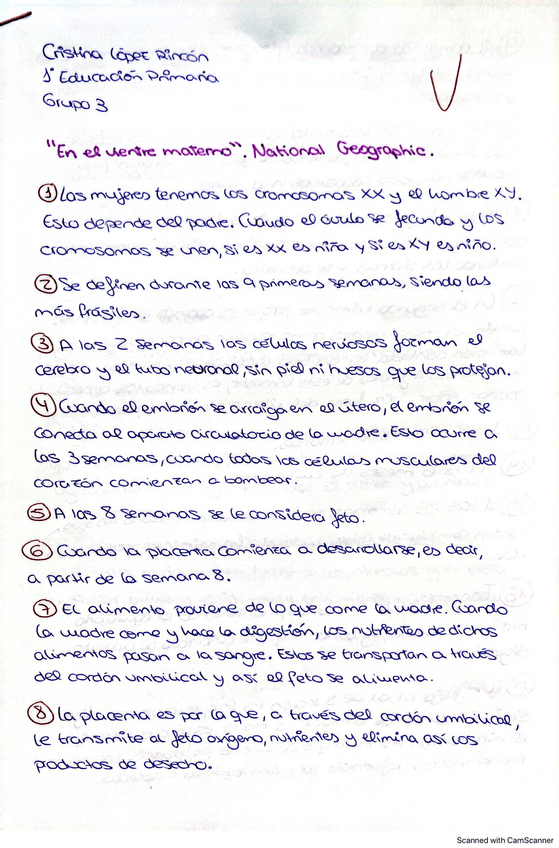 Cristina López Rincón
1º Educación Primaria
Grupo 3
"En el vientre materno". National Geographic.
① Las mujeres tenemos los cromosomas XX y el hombre XY.
Esto depende del padre. Cuando el óvulo se fecunda y los
cromosomas se unen, si es XX es niña y si es XY es niño.
② Se definen durante las 9 primeras semanas, siendo las
más frágiles.
③ A las 2 semanas las células nerviosas forman el
cerebro y el tubo neuronal, sin piel ni huesos que los protejan.
④ Cuando el embrión se arraiga en el útero, el embrión se
conecta al aparato circulatorio de la madre. Esto ocurre a
las 3 semanas, cuando todas las células musculares del
corazón comienzan a bombear.
⑤ A las 8 semanas se le considera feto.
⑥ Cuando la placenta comienza a desarrollarse, es decir,
a partir de la semana 8.
⑦ El alimento proviene de lo que come la madre. Cuando
la madre come y hace la digestión, los nutrientes de dichos
alimentos pasan a la sangre. Estos se transportan a través
del cordón umbilical y así el feto se alimenta.
⑧ La placenta es por la que, a través del cordón umbilical,
le transmite al feto oxígeno, nutrientes y elimina así los
productos de desecho.
Scanned with CamScanner